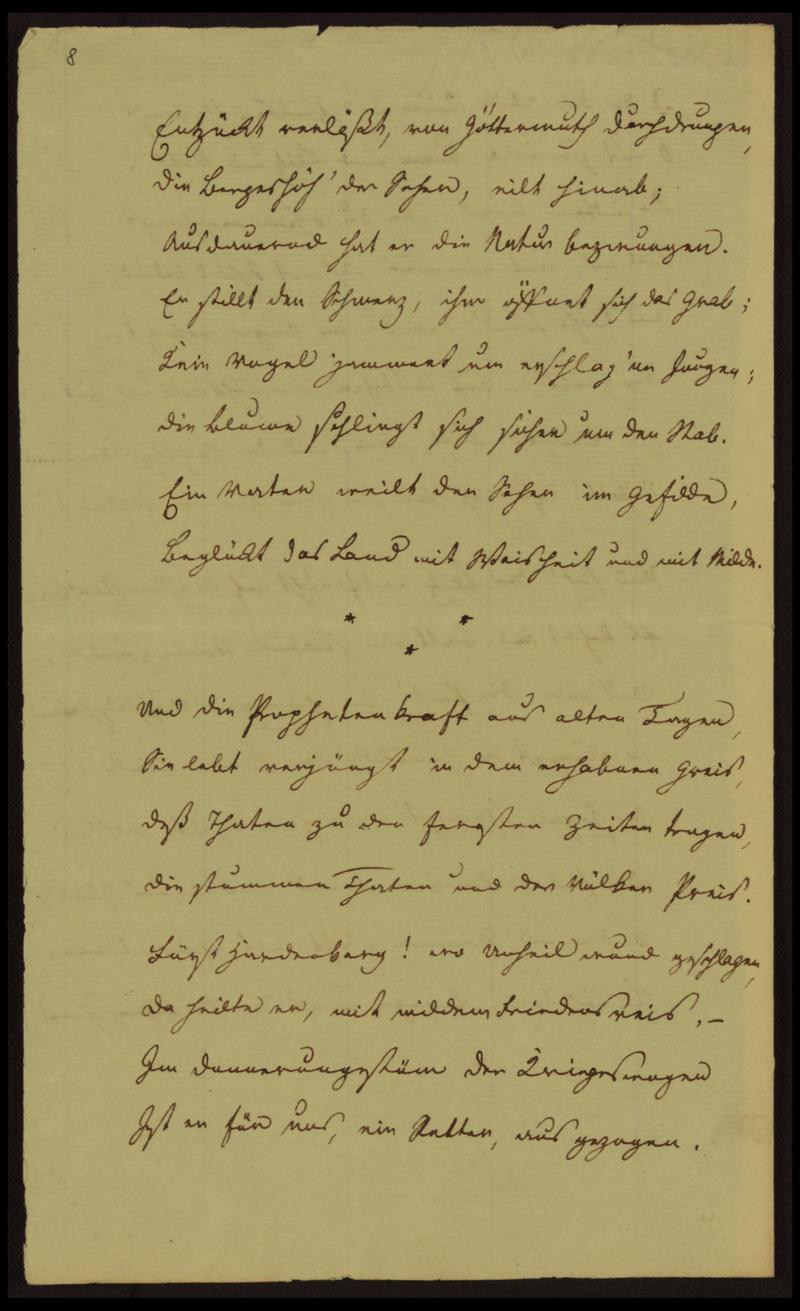 8
Entzückt verläßt, von Göttermuth durchdrungen,
die Bergeshöh' der Seher, eilt hinab;
Ausdauernd hat er die Natur bezwungen.
Er stillt den Schmerz, ihm öffnet sich das Grab;
Kein Vogel jammert um erschlag'ne Jungen;
die Blume schlingt sich sicher um den Stab.
Ein Vater weilt der Seher im Gefilde,
Beglückt das Land mit Weisheit und mit Milde.
* *
*
Und die Prophetenkraft aus alten Tagen,
Sie lebt verjüngt in dem erhabnen Greis,
deß Thaten zu den fernsten Zeiten tragen,
die stummen Thaten und der Völker Preis.
Fürst Hardenberg! wo Unheil wund geschlagen,
da heilte er, mit mildem Friedensreis, –
Im Donnerungestüm der Krieges wagen
Ist er für uns, ein Retter, ausgezogen.